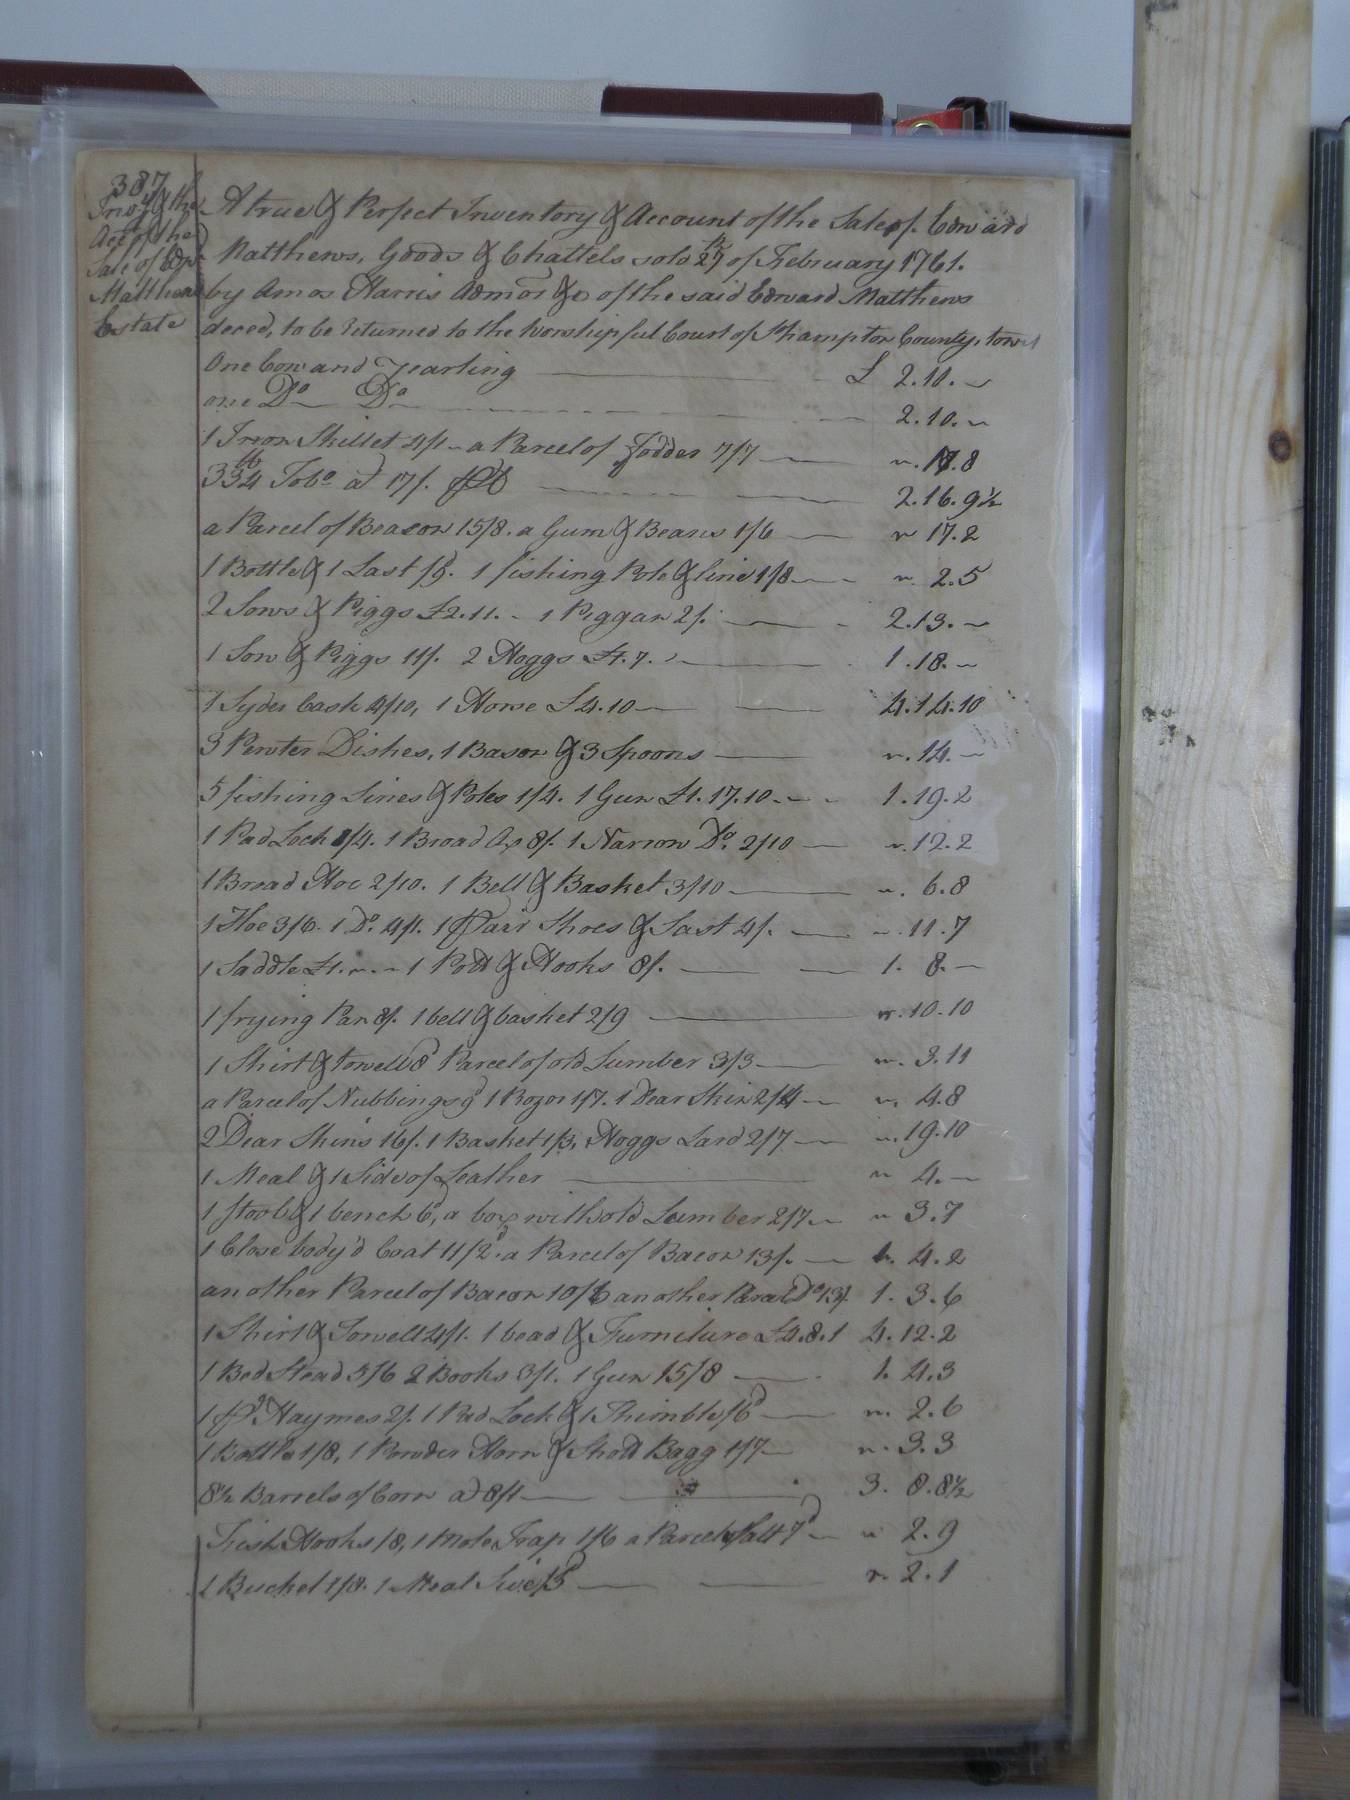 387
Invy & the
Acct of the
Sale of Edwd
Matthews
Estate
A true & Perfect Inventory & Account of the Sale of Edward
Matthews, Goods & Chattels sold 27th of February 1761.
by Amos Harris Admor &c of the said Edward Matthews
deced, to be returned to the Worshipful Court of Shampton County, towit
One Cow and Yearling £ 2.10. ~
one Do Do 2.10. ~
1 Iron Skillet 4/1 ~ a Parcel of Fodder 7/7 ~. 11.8
334 lb Tobo at 17/. P Ct 2.16.9½
a Parcel of Beacon 15/8. a Gum & Beans 1/6 ~ 17.2
1 Bottle & 1 Last /9. 1 fishing Pole & line 1/8 ~. 2.5
2 Sows & Piggs £2.11. ~ 1 Piggan 2/. 2.13. ~
1 Sow & Piggs 11/. 2 Hoggs £1.7. ~ 1.18. ~
1 Syder Cask 4/10, 1 Horse £4.10 4.14.10
3 Pewter Dishes, 1 Bason & 3 Spoons ~. 14. ~
5 fishing Lines & Poles 1/4. 1 Gun £1.17.10. ~ 1.19.2
1 Pad Lock 1/4. 1 Broad Ax 8/. 1 Narrow Do. 2/10 ~. 12.2
1 Broad Hoe 2/10. 1 Bell & Basket 3/10 ~. 6.8
1 Hoe 3/6. 1 Do. 4/1. 1 Pair Shoes & Last 4/. ~. 11.7
1 Saddle £1. ~ ~ 1 Pott & Hooks 8/. 1. 8. ~
1 frying Pan 8/. 1 bell & basket 2/9 ~. 10.10
1 Shirt & towell 8d Parcel of old Lumber 3/3 ~. 3.11
a Parcel of Nubbings 9d 1 Rozor 1/7. 1 Dear Skin 2/4 ~. 4.8
2 Dear Skins 16/. 1 Basket 1/3, Hoggs Lard 2/7 ~. 19.10
1 Meal & 1 Side of Leather ~ 4. ~
1 stool & 1 bench 6d, a box with old Lumber 2/7 ~ ~ 3.7
1 Close body'd Coat 11/2d. a Parcel of Bacon 13/. 1. 4.2
another Parcel of Bacon 10/6 another Parcel Do 13/ 1. 3.6
1 Shirt & Towell 4/1. 1 bead & Furniture £4.8.1 4.12.2
1 Bed Stead 5/6 2 Books 3/1. 1 Gun 15/8 1. 4.3
1 Pr. Haymes 2/. 1 Pad Lock & 1 Thimble /6d ~. 2.6
1 Bottle 1/8, 1 Powder Horn & Shott Bagg 1/7 ~. 3.3
8½ Barrels of Corn at 8/1 3. 8.8½
Fish Hooks /8, 1 Mole Trap 1/6 a Parcel Salt 7d ~ 2.9
1 Bucket 1/8. 1 Meal Sive /5d ~. 2.1